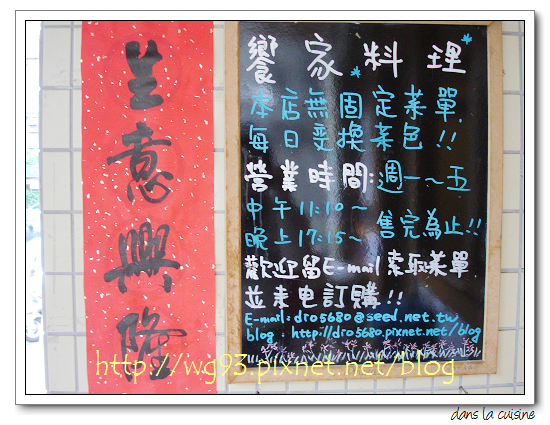 生意興隆
饗家料理
本店無固定菜單
每日更換菜色!!
營業時間:週一~五
中午11:10~
晚上17:15~ 售完為止!!
歡迎留E-mail索取菜單
並來电訂購!!
E-mail:dro5680@seed.net.tw
blog:http://dro5680.pixnet.net/blog
http://wg93.pixnet.net/blog
dans la cuisine